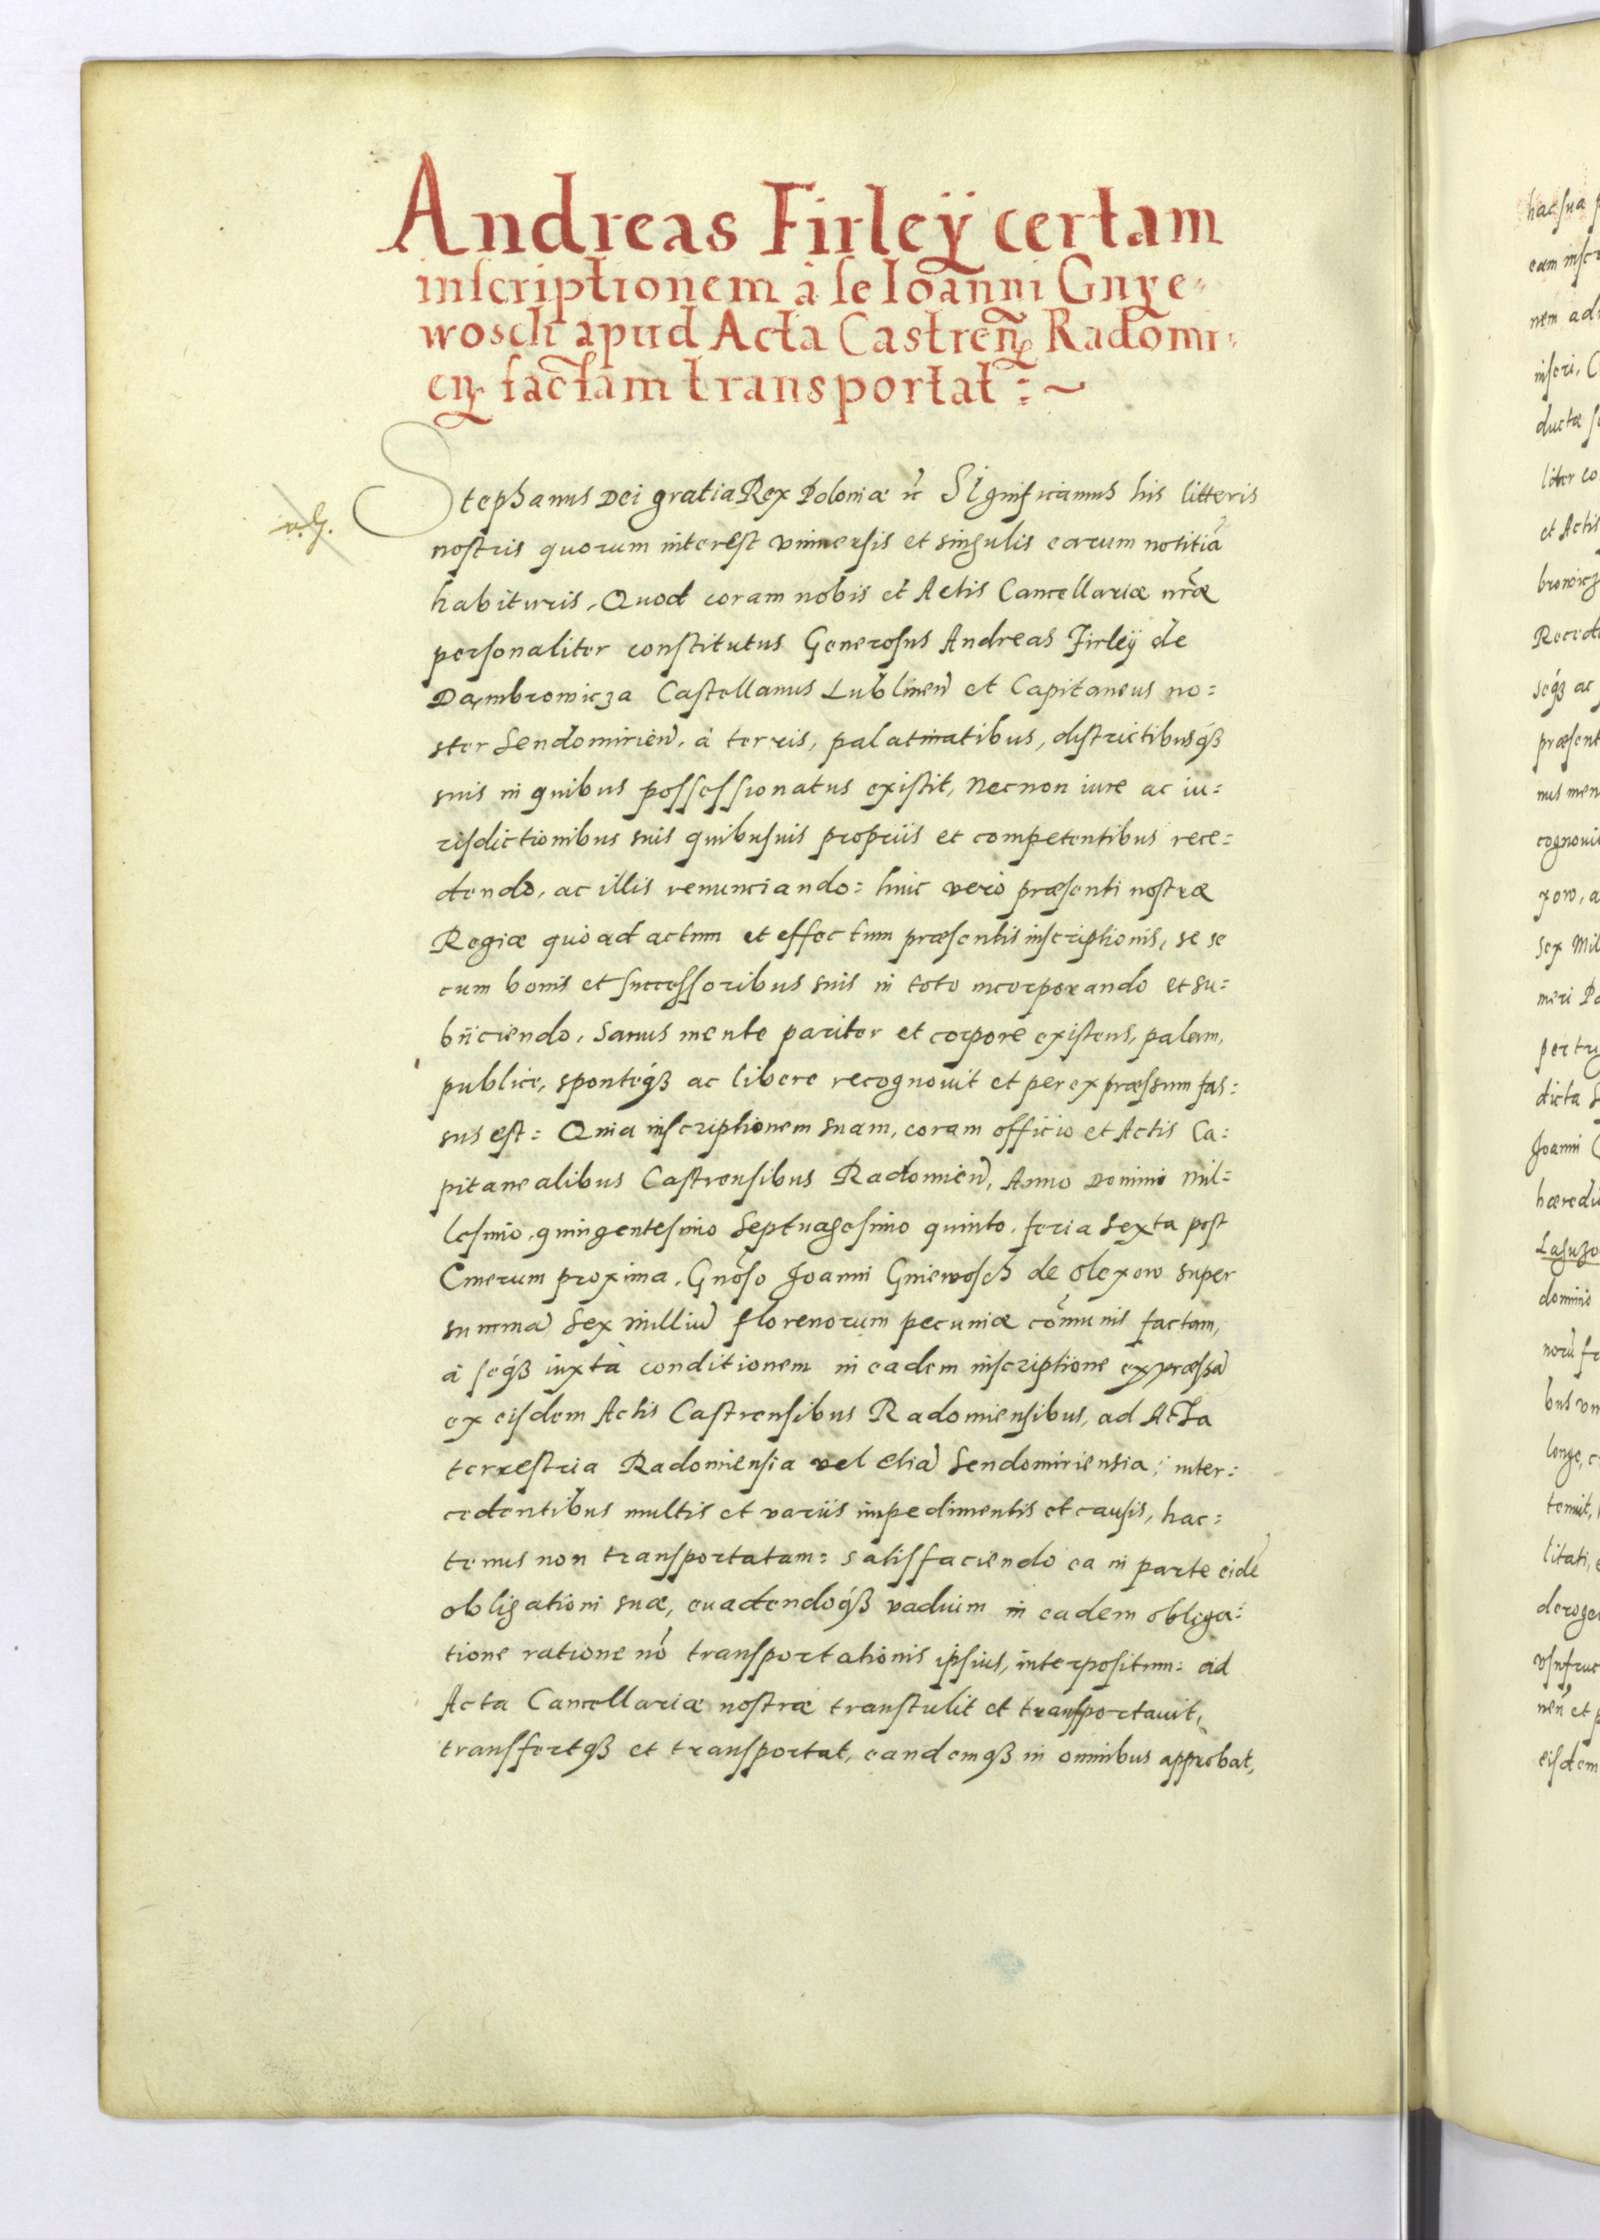 Andreas Firleÿ certam
inscriptionem à se Ioanni Gnye-
wosch apud Acta Castren̄ Radomi-
eņ factam transportat:~
Stephanus Dei gratia Rex Poloniæ ĩc Significamus his litteris
v. G.
nostris quorum interest vniuersis et singulis earum notitiã
habituris, Quod coram nobis et Actis Cancellariæ nr̃æ
personaliter constitutus Generosus Andreas Firleÿ de
Dambrowicza Castellanus Lublinen̄ et Capitaneus no:
ster Sendomirien̄. à terris, palatinatibus, districtibusq́ꝫ
suis in quibus possessionatus existit, Necnon iure ac iu:
risdictionibus suis quibusuis proprijs et competentibus rece:
dendo, ac illis renunciando: huic vero præsenti nostræ
Regiæ quo ad actum et effectum præsentis inscriptionis, se se
cum bonis et successoribus suis in toto incorporando et su:
bijciendo, Sanus mente pariter et corpore existens, palam,
publice, sponteq́ꝫ ac libere recognouit et per expræssum fas:
sus est: Quia inscriptionem suam, coram officio et Actis Ca:
pitanealibus Castrensibus Radomien̄, Anno Domini Mil:
lesimo, quingentesimo Septuagesimo quinto, feria Sexta post
Cinerum proxima, Gnõso Joanni Gniewosch de Olexow super
summã Sex milliũ florenorum pecuniæ cõmunis factam,
à seq́ꝫ iuxta conditionem in eadem inscriptione expræssã
ex eisdem Actis Castrensibus Radomiensibus, ad Acta
terrestria Radomiensia vel etiã Sendomiriensia, inter:
cedentibus multis et varijs impedimentis et causis, hac:
tenus non transportatam: satisfaciendo ea in parte eidẽ
obligationi suæ, euadendoq́ꝫ vadium in eadem obliga:
tione ratione nõ transportationis ipsius, interpositum: ad
Acta Cancellariæ nostræ transtulit et transportauit,
transfertqꝫ et transportat, eandemqꝫ in omnibus approbat,
hac sua
nem ad
ductæ
et Actis
præsent
Sex Mil
dicta
Joanni
dominio
eisdem